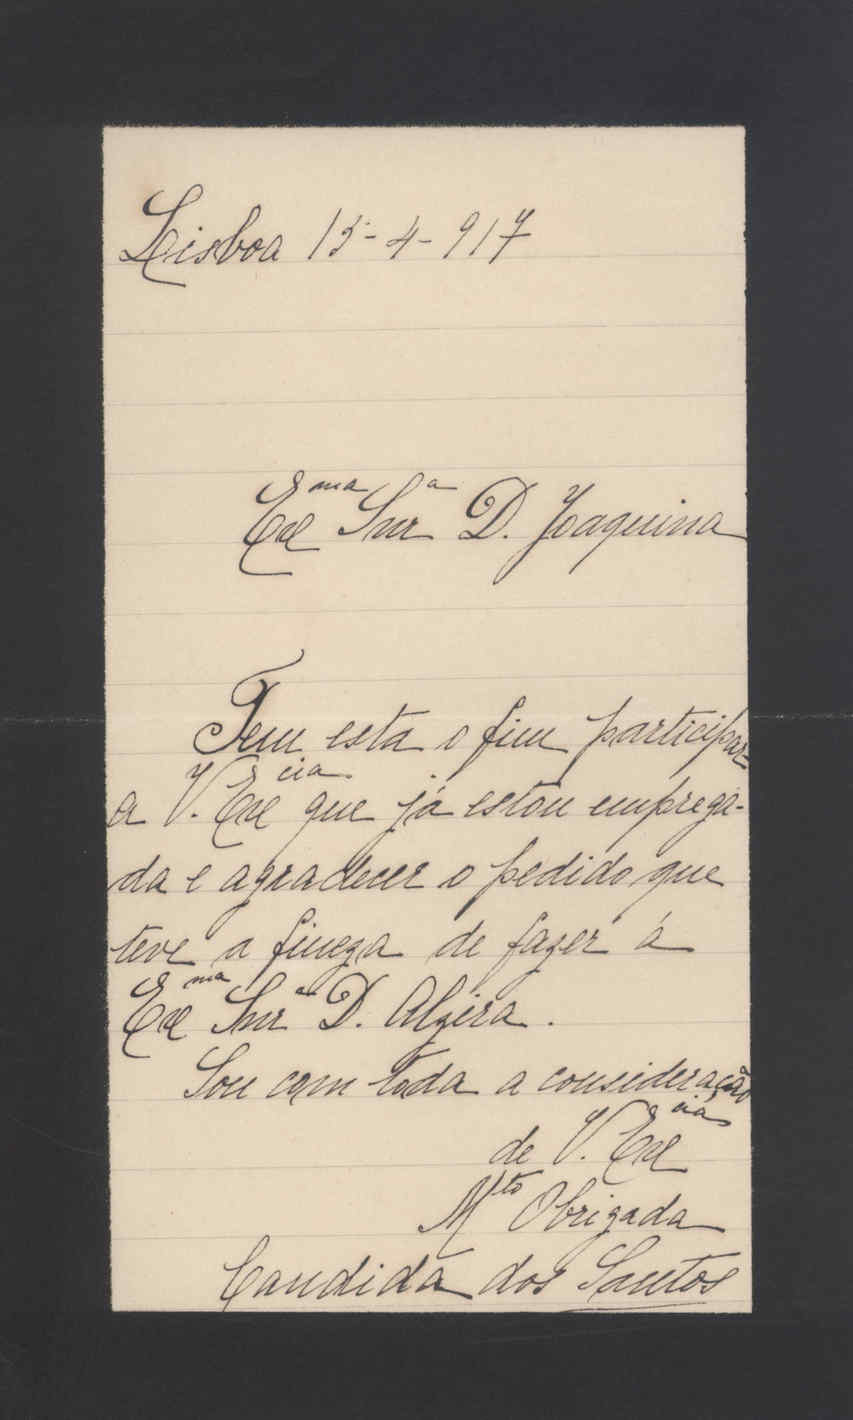 Lisboa 15-4-917
Exma Snra D. Joaquina
Tem esta o fim participar
a V. Excia que já estou emprega-
da e agradecer o pedido que
teve a fineza de fazer á
Exma Snra D. Alzira.
Sou com toda a consideração
de V. Excia
Mto Obrigada
Candida dos Santos